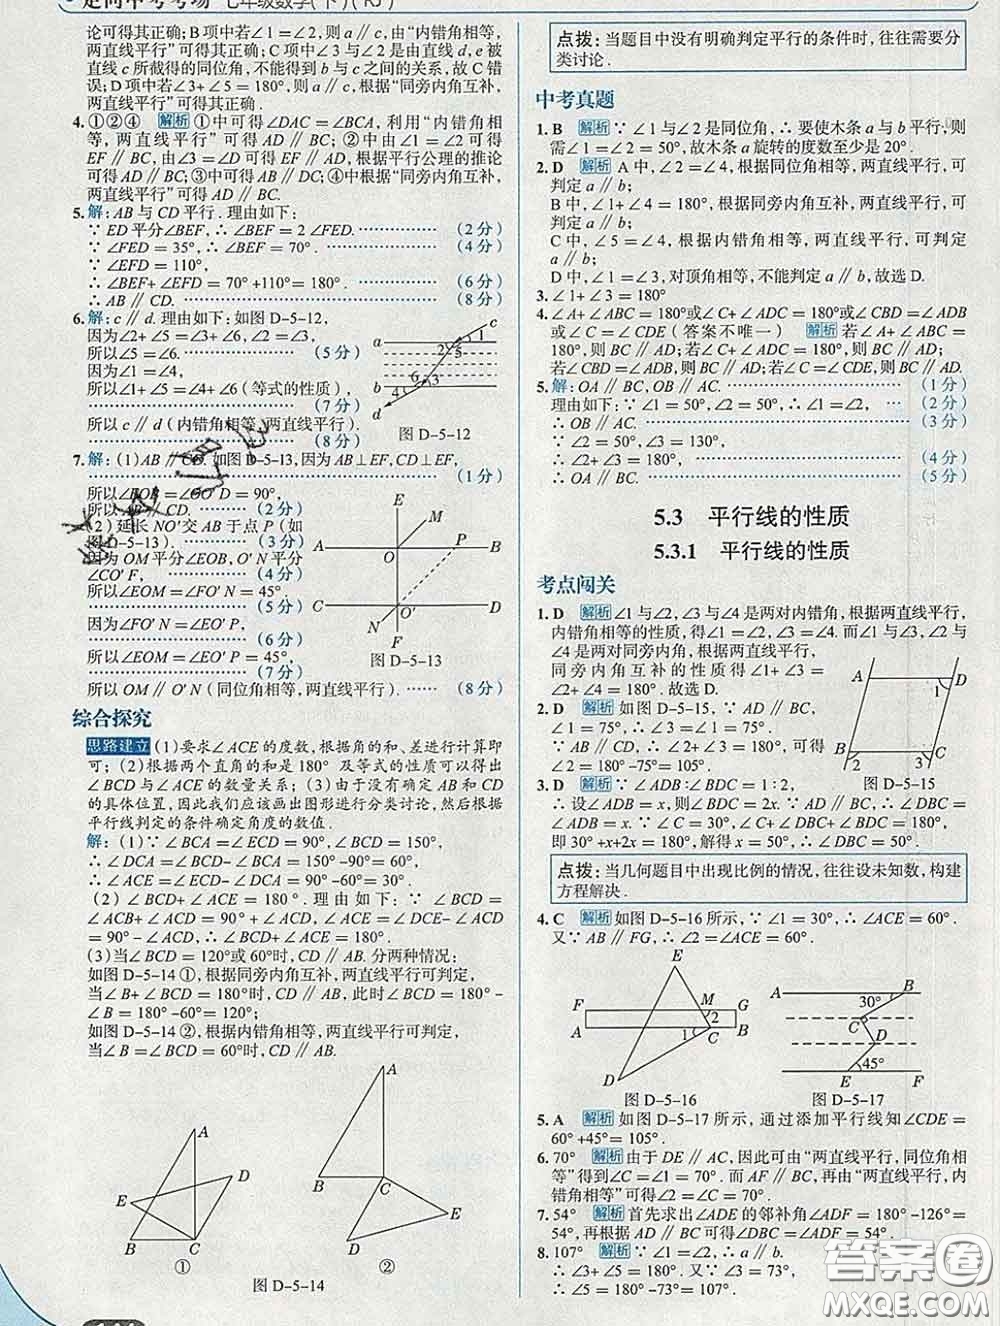 走向中考考场 七年级数学(下)(RJ)
论可得其正确;B项中若∠1=∠2,则a∥c,根据“内错角相等,
两直线平行”可得其正确;C项中若∠3=∠2是由直线d、e被
直线c所截得的同位角,不能得到b与c之间的关系,故C错
误;D项中若∠3+∠5=180°,则a∥c,根据“同旁内角互补,
两直线平行”可得其正确.
4.①②④ 解析 ①中可得∠DAC=∠BCA,利用“内错角相
等,两直线平行”可得AD∥BC;②中可得
EF∥BC,由∠3=∠D可得EF∥AD,根据平行公理的推论
可得AD∥BC;③中可得AB∥DC;④中可根据“同旁内角互补,
两直线平行”可得AD∥BC.
5.解:AB与CD平行.理由如下:
∵ED平分∠BEF,∴∠BEF=2∠FED. (2分)
∵∠FED=35°,∴∠BEF=70°. (4分)
∵∠EFD=110°,
∴∠BEF+∠EFD=70°+110°=180°. (6分)
∴AB∥CD. (8分)
6.解:c∥d.理由如下:如图D-5-12,
因为∠2+∠5=∠3+∠6,∠2=∠3,
所以∠5=∠6. (5分)
因为∠1=∠4,
所以∠1+∠5=∠4+∠6(等式的性质).
(7分)
所以c∥d(内错角相等,两直线平行).
(8分)
a b c d 1 2 5 6 3 4
图D-5-12
7.解:(1)AB∥CD.如图D-5-13,因为AB⊥EF,CD⊥EF,
(1分)
所以∠EOB=∠OO′D=90°,
所以AB∥CD. (2分)
(2)延长NO′交AB于点P(如
图D-5-13). (3分)
因为OM平分∠EOB,O′N平分
∠CO′F, (4分)
所以∠EOM=∠FO′N=45°.
(5分)
因为∠FO′N=∠EO′P,
(6分)
所以∠EOM=∠EO′P=45°,
(7分)
所以OM∥O′N(同位角相等,两直线平行). (8分)
E M A O P B C O′ D N F
图D-5-13
综合探究
思路建立 (1)要求∠ACE的度数,根据角的和、差进行计算即
可;(2)根据两个直角的和是180°及等式的性质可以得出
∠BCD与∠ACE的数量关系;(3)由于没有确定AB和CD
的具体位置,因此我们应该画出图形进行分类讨论,然后根据
平行线判定的条件确定角度的数值.
解:(1)∵∠BCA=∠ECD=90°,∠BCD=150°,
∴∠DCA=∠BCD-∠BCA=150°-90°=60°,
∴∠ACE=∠ECD-∠DCA=90°-60°=30°.
(2)∠BCD+∠ACE=180°.理由如下:∵∠BCD=
∠ACB+∠ACD=90°+∠ACD,∠ACE=∠DCE-∠ACD
=90°-∠ACD,∴∠BCD+∠ACE=180°.
(3)当∠BCD=120°或60°时,CD∥AB.分两种情况:
如图D-5-14①,根据同旁内角互补,两直线平行可判定,
当∠B+∠BCD=180°时,CD∥AB,此时∠BCD=180°-
∠B=180°-60°=120°;
如图D-5-14②,根据内错角相等,两直线平行可判定,
当∠B=∠BCD=60°时,CD∥AB.
A E D B C
①
A B C E D
②
图D-5-14
点拨:当题目中没有明确判定平行的条件时,往往需要分
类讨论.
中考真题
1.B 解析 ∵∠1与∠2是同位角,∴要使木条a与b平行,则
需∠1=∠2=50°,故木条a旋转的度数至少是20°.
2.D 解析 A中,∠2=∠4,根据同位角相等,两直线平行,可
判定a∥b;
B中,∠1+∠4=180°,根据同旁内角互补,两直线平行,可
判定a∥b;
C中,∠5=∠4,根据内错角相等,两直线平行,可判定
a∥b;
D中,∠1=∠3,对顶角相等,不能判定a∥b,故选D.
3.∠1+∠3=180°
4.∠A+∠ABC=180°或∠C+∠ADC=180°或∠CBD=∠ADB
或∠C=∠CDE(答案不唯一) 解析 若∠A+∠ABC=
180°,则BC∥AD;若∠C+∠ADC=180°,则BC∥AD;若
∠CBD=∠ADB,则BC∥AD;若∠C=∠CDE,则BC∥AD.
5.解:OA∥BC,OB∥AC. (1分)
理由如下:∵∠1=50°,∠2=50°,∴∠1=∠2, (2分)
∴OB∥AC. (3分)
∵∠2=50°,∠3=130°,
∴∠2+∠3=180°, (4分)
∴OA∥BC. (5分)
5.3 平行线的性质
5.3.1 平行线的性质
考点闯关
1.D 解析 ∠1与∠2,∠3与∠4是两对内错角,根据两直线平行,
内错角相等的性质,得∠1=∠2,∠3=∠4.而∠1与∠3,∠2与
∠4是两对同旁内角,根据两直线平行,
同旁内角互补的性质得∠1+∠3=
∠2+∠4=180°.故选D.
2.D 解析 如图D-5-15,∵AD∥BC,
∠1=75°,∴∠3=∠1=75°.
∵AB∥CD,∴∠2=180°-∠3
=180°-75°=105°.
A D 1 B 2 3 C
图D-5-15
3.D 解析 ∵∠ADB∶∠BDC=1∶2,
∴设∠ADB=x,则∠BDC=2x.∵AD∥BC,∴∠DBC=
∠ADB=x.∵∠C=30°,∠C+∠DBC+∠BDC=180°,
即30°+x+2x=180°,解得x=50°,∴∠DBC=50°.
点拨:当几何题目中出现比例的情况,往往设未知数,构建
方程解决.
4.C 解析 如图D-5-16所示,∵∠1=30°,∴∠ACE=60°.
又∵AB∥FG,∴∠2=∠ACE=60°.
E F M G 2 A 1 C B D
图D-5-16
A B 30° C D 45° E F
图D-5-17
5.A 解析 如图D-5-17所示,通过添加平行线知∠CDE=
60°+45°=105°.
6.70° 解析 由于DE∥AC,因此可由“两直线平行,同位角
相等”得到∠C=∠1=70°.而AF∥BC,再由“两直线平行,内
错角相等”可得∠2=∠C=70°.
7.54° 解析 首先求出∠ADE的邻补角∠ADF=180°-126°=
54°,再由DF∥BC可得∠DBC=∠ADF=54°.
8.107° 解析 ∵∠1=∠2,∴a∥b.
∴∠3+∠5=180°.又∵∠3=73°,
∴∠5=180°-73°=107°.
答案圈
MXQE.COM